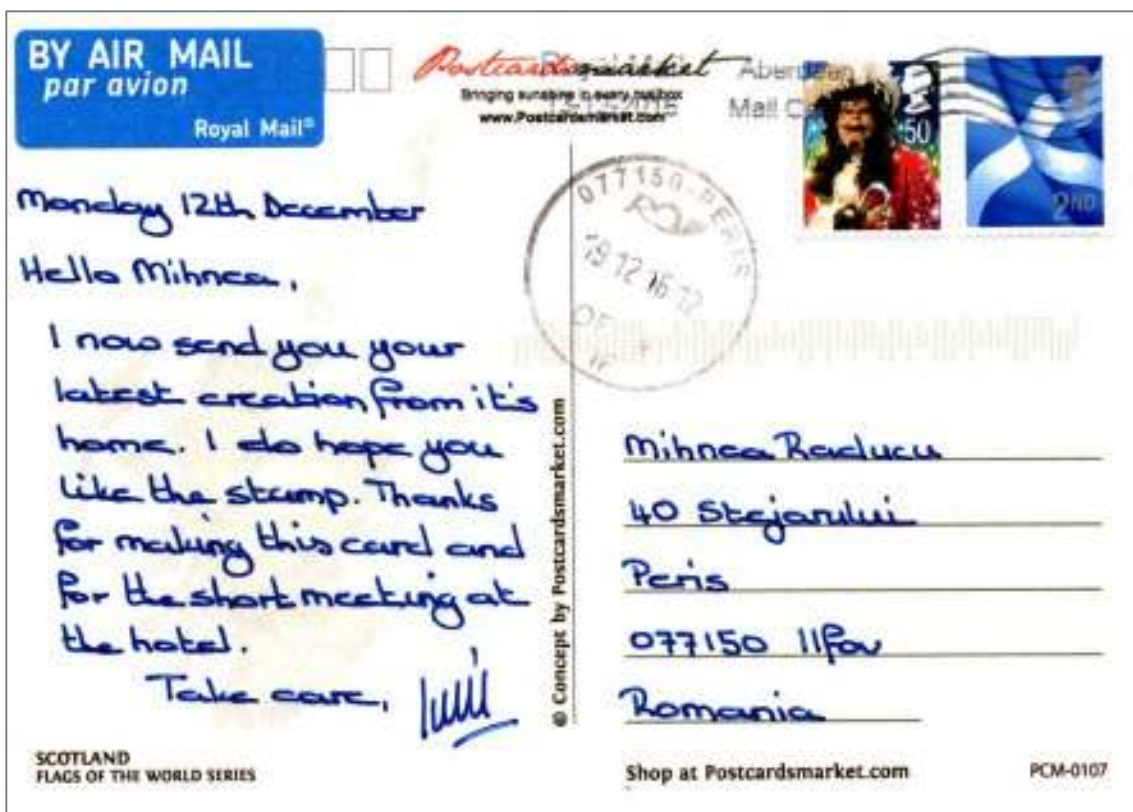 BY AIR MAIL
par avion
Royal Mail®
Postcardsmarket
Bringing sunshine in every mailbox
www.Postcardsmarket.com
Aberdeen
Mail
50
2ND
077150-PERIS
19.12.16-12
Monday 12th December
Hello Mihnea,
I now send you your
latest creation from it's
home. I do hope you
like the stamp. Thanks
for making this card and
for the short meeting at
the hotel.
Take care,
© Concept by Postcardsmarket.com
Mihnea Raducu
40 Stejarului
Peris
077150 Ilfov
Romania
SCOTLAND
FLAGS OF THE WORLD SERIES
Shop at Postcardsmarket.com
PCM-0107